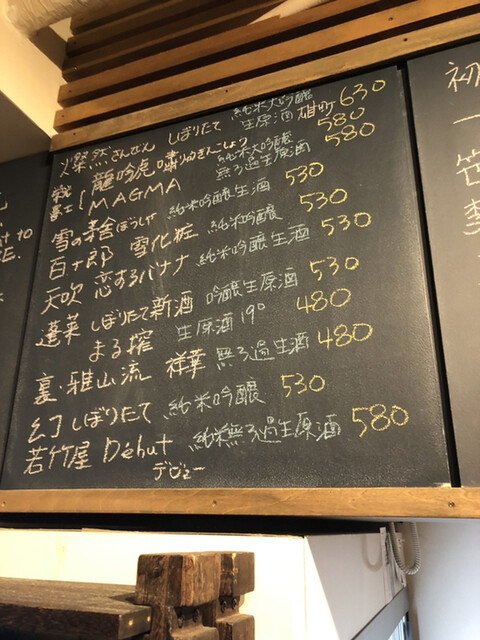 燦然さんぜん しぼりたて 純米大吟醸 生原酒 雄町 630
龍吟虎嘯りゅうぎんこしょう 純米大吟醸 580
MAGMA 無ろ過生原酒 580
雪の茅舎ぼうしゃ 純米吟醸生酒 530
百十郎 雪化粧 純米吟醸 530
天吹 恋するバナナ 純米吟醸生酒 530
蓬莱 しぼりたて新酒 吟醸生原酒 530
まる搾 生原酒 19° 480
裏・雅山流 祥華 無ろ過生酒 480
幻 しぼりたて 純米吟醸 530
若竹屋 Début 純米無ろ過生原酒 580
デビュー
初
一